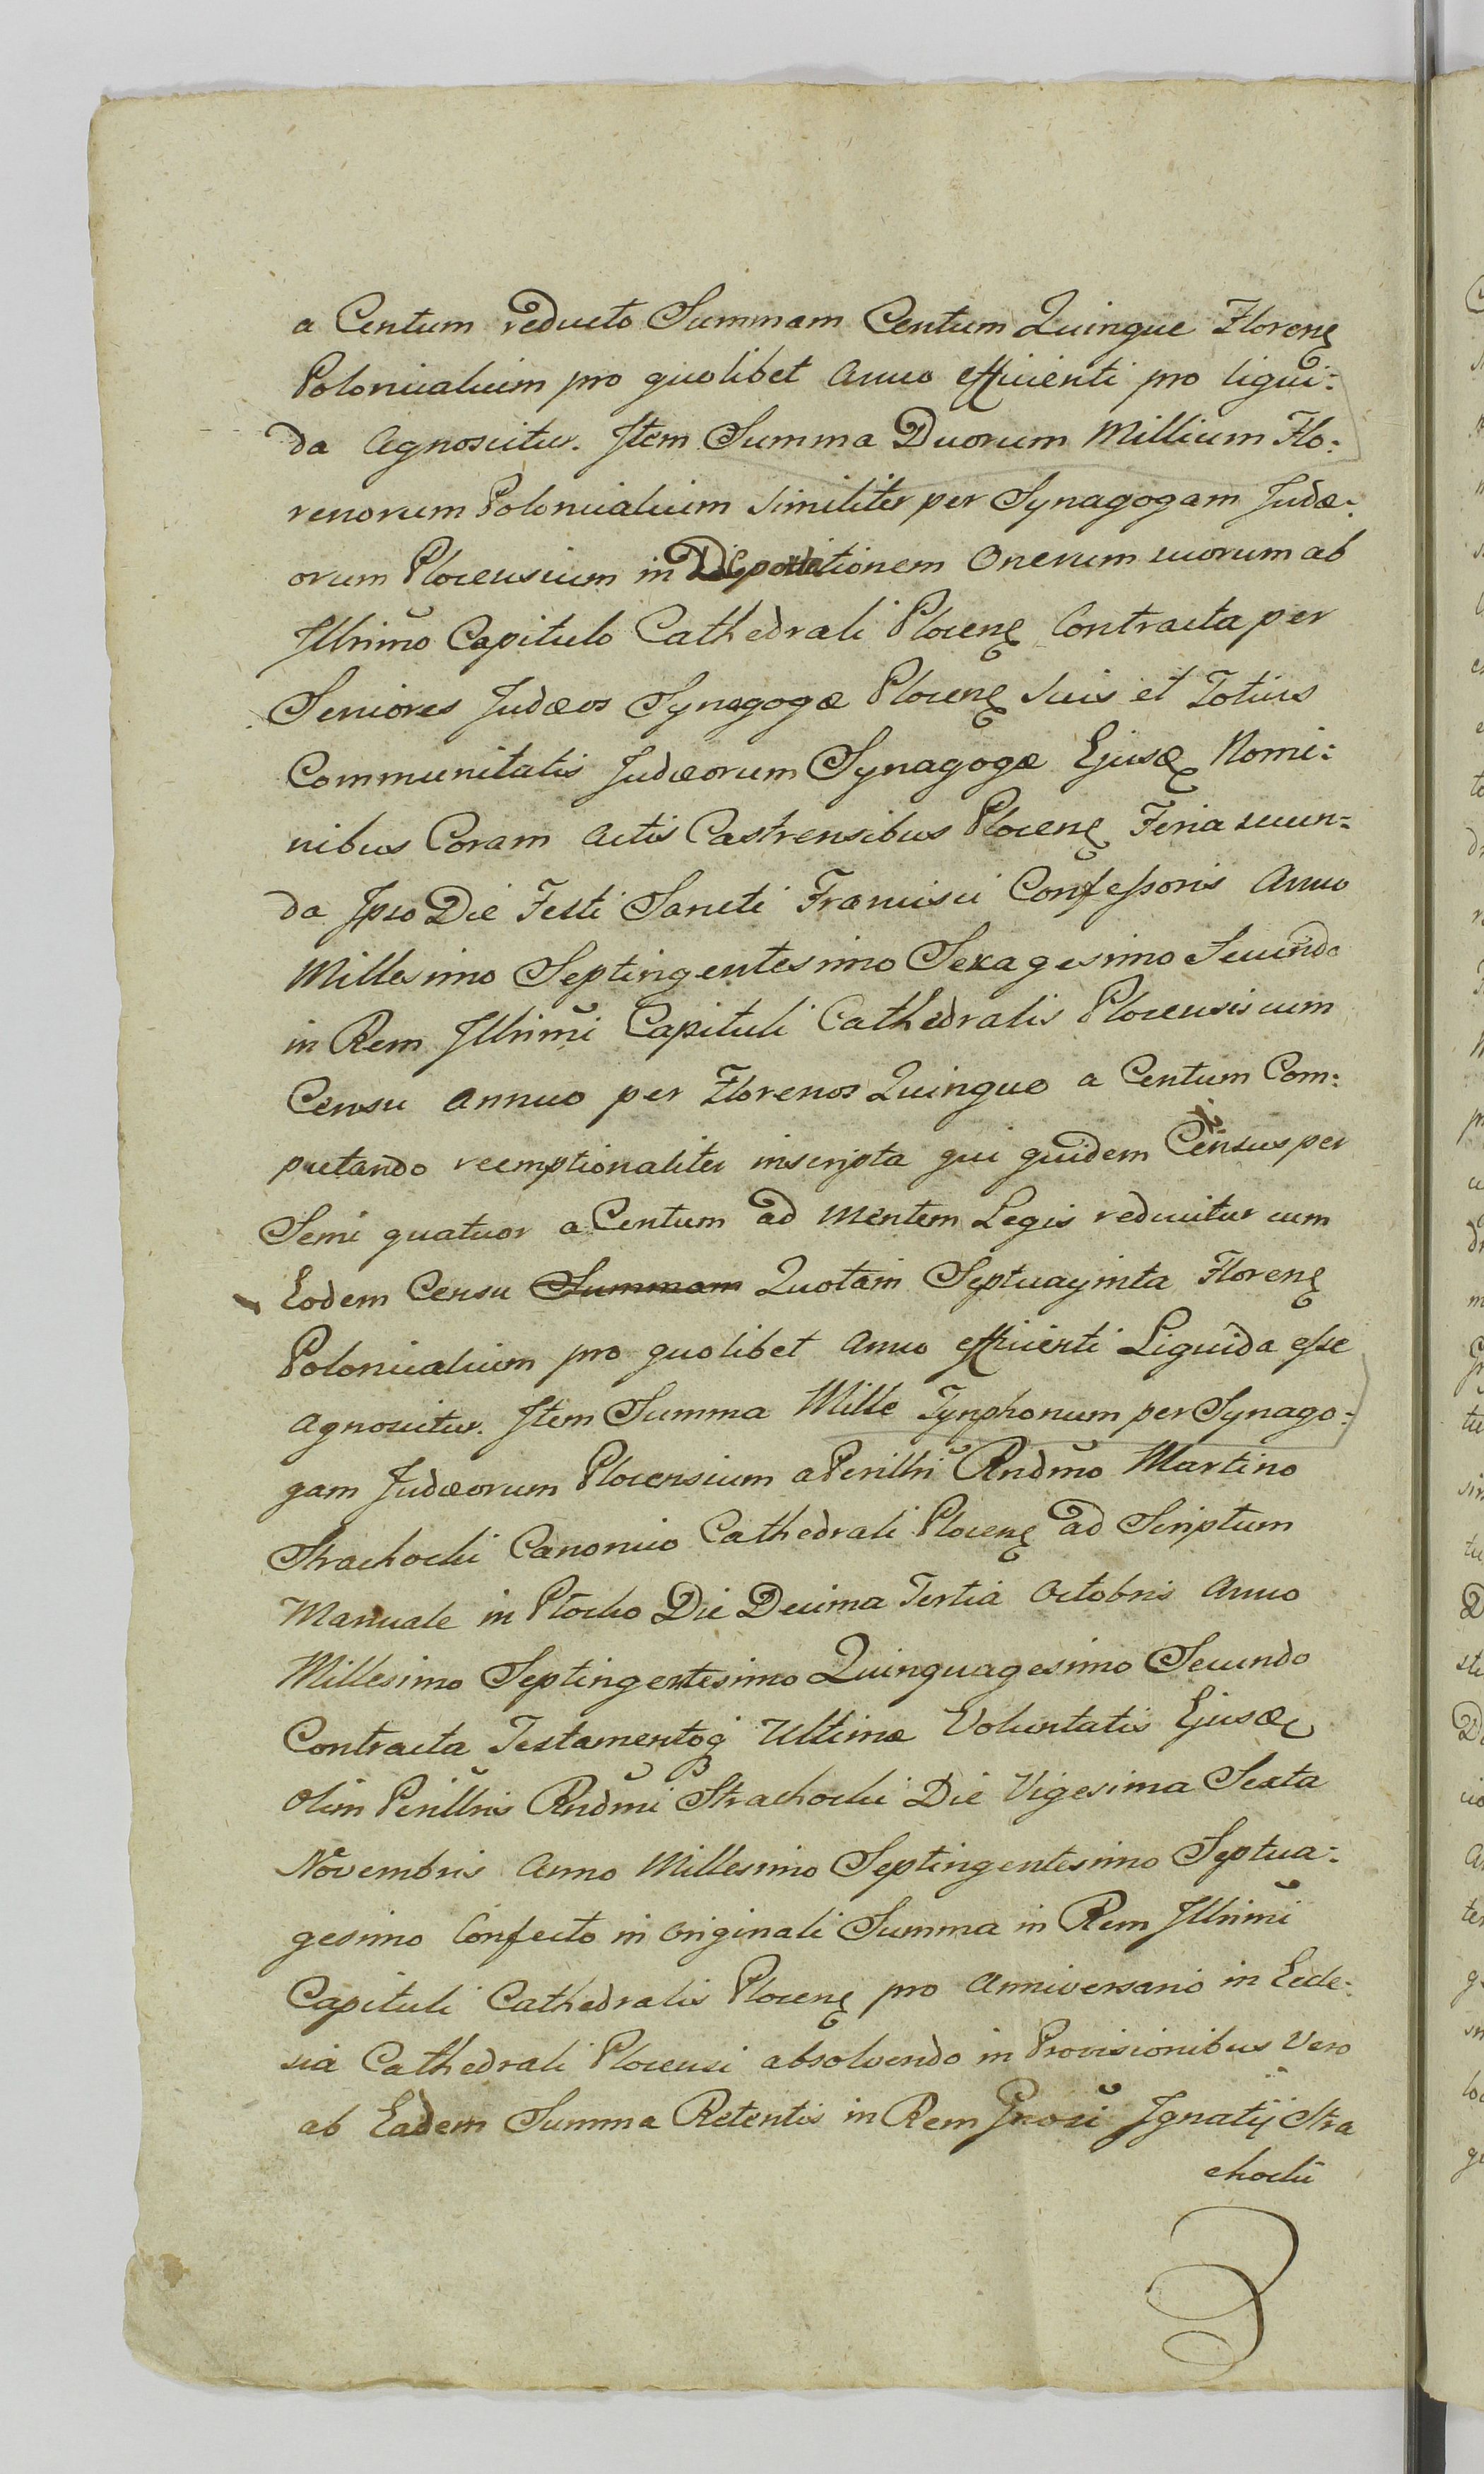 a Centum reducto Summam Centum Quinque Floreng
Polonicalium pro quolibet Anno efficienti pro liqui:
da Agnoscitur. Item Summa Duorum Millium Flo:
renorum Polonicalium similiter per Synagogam Judæ:
orum Plocensium in Onerum suorum ab
Illrimo Capitulo Cathedrali Ploceng Contracta per
Seniores Judæos Synagogæ Ploceng Suis et Totius
Communitatis Judæorum Synagogæ Ejusd Nomi:
nibus Coram Actis Castrensibus Ploceng Feria secun:
da Ipso Die Festi Sancti Francisci Confessoris Anno
Millesimo Septingentesimo Sexagesimo Secundo
in Rem Illrimi Capituli Cathedralis Plocensis cum
Censu Annuo per Florenos Quinque a Centum Com:
putando reemptionaliter inscripta qui quidem Census per
Semi quatuor a Centum ad Mentem Legis reducitur cum
Eodem Censu Summam Quotam Septuaginta Floreng
Polonicalium pro quolibet Anno efficienti Liquida esse
Agnoscitur. Item Summa Mille Tynphonum per Synago:
gam Judæorum Plocensium a Perillri Rndmo Martino
Strachocki Canonico Cathedrali Ploceng ad Scriptum
Manuale in Płocko Die Decima Tertia Octobris Anno
Millesimo Septingentesimo Quinquagesimo Secundo
Contracta Testamentoq Ultimæ Voluntatis Ejusd
Olim Perillris Rndmi Strachocki Die Vigesima Sexta
Novembris Anno Millesimo Septingentesimo Septua:
gesimo Confecto in Originali Summa in Rem Illrimi
Capituli Cathedralis Ploceng pro Anniversario in Eccle:
sia Cathedrali Plocensi absolvendo in Provisionibus Vero
ab Eadem Summa Retentis in Rem Gnosi Ignatij Stra
chocki